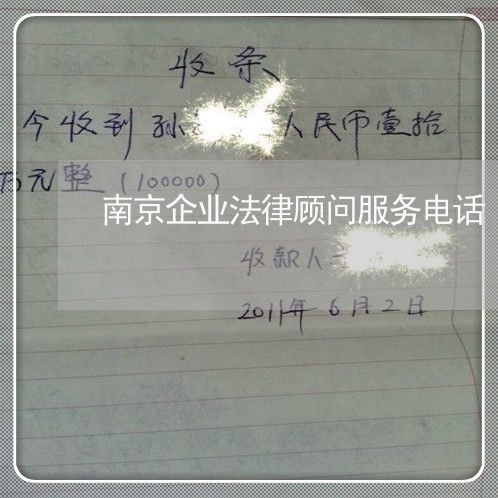 收条
今收到孙 人民币壹拾
万元整(100000)
南京企业法律顾问服务电话
收款人
2011年6月2日